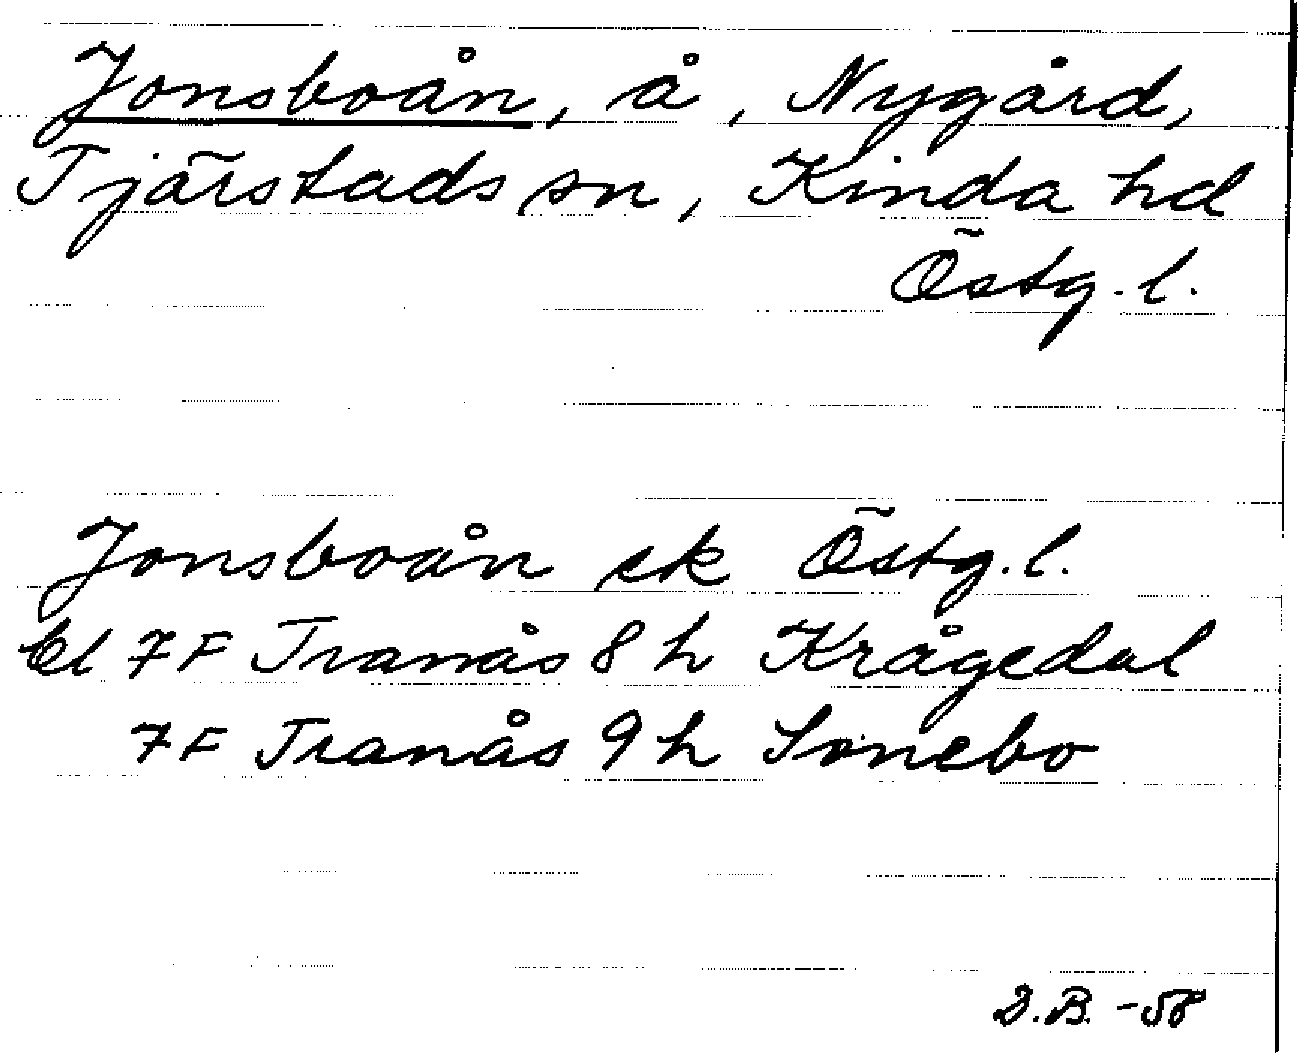 Jonsboån, å, Nygård,
Tjärstads sn, Kinda hd
Östg. l.
Jonsboån ek Östg. l.
bl 7F Tranås 8 h Krågedal
7F Tranås 9 h Sonebo
D.B. -58